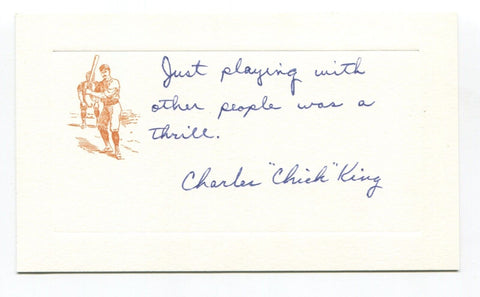 Just playing with
other people was a
thrill.
Charles "Chick" King